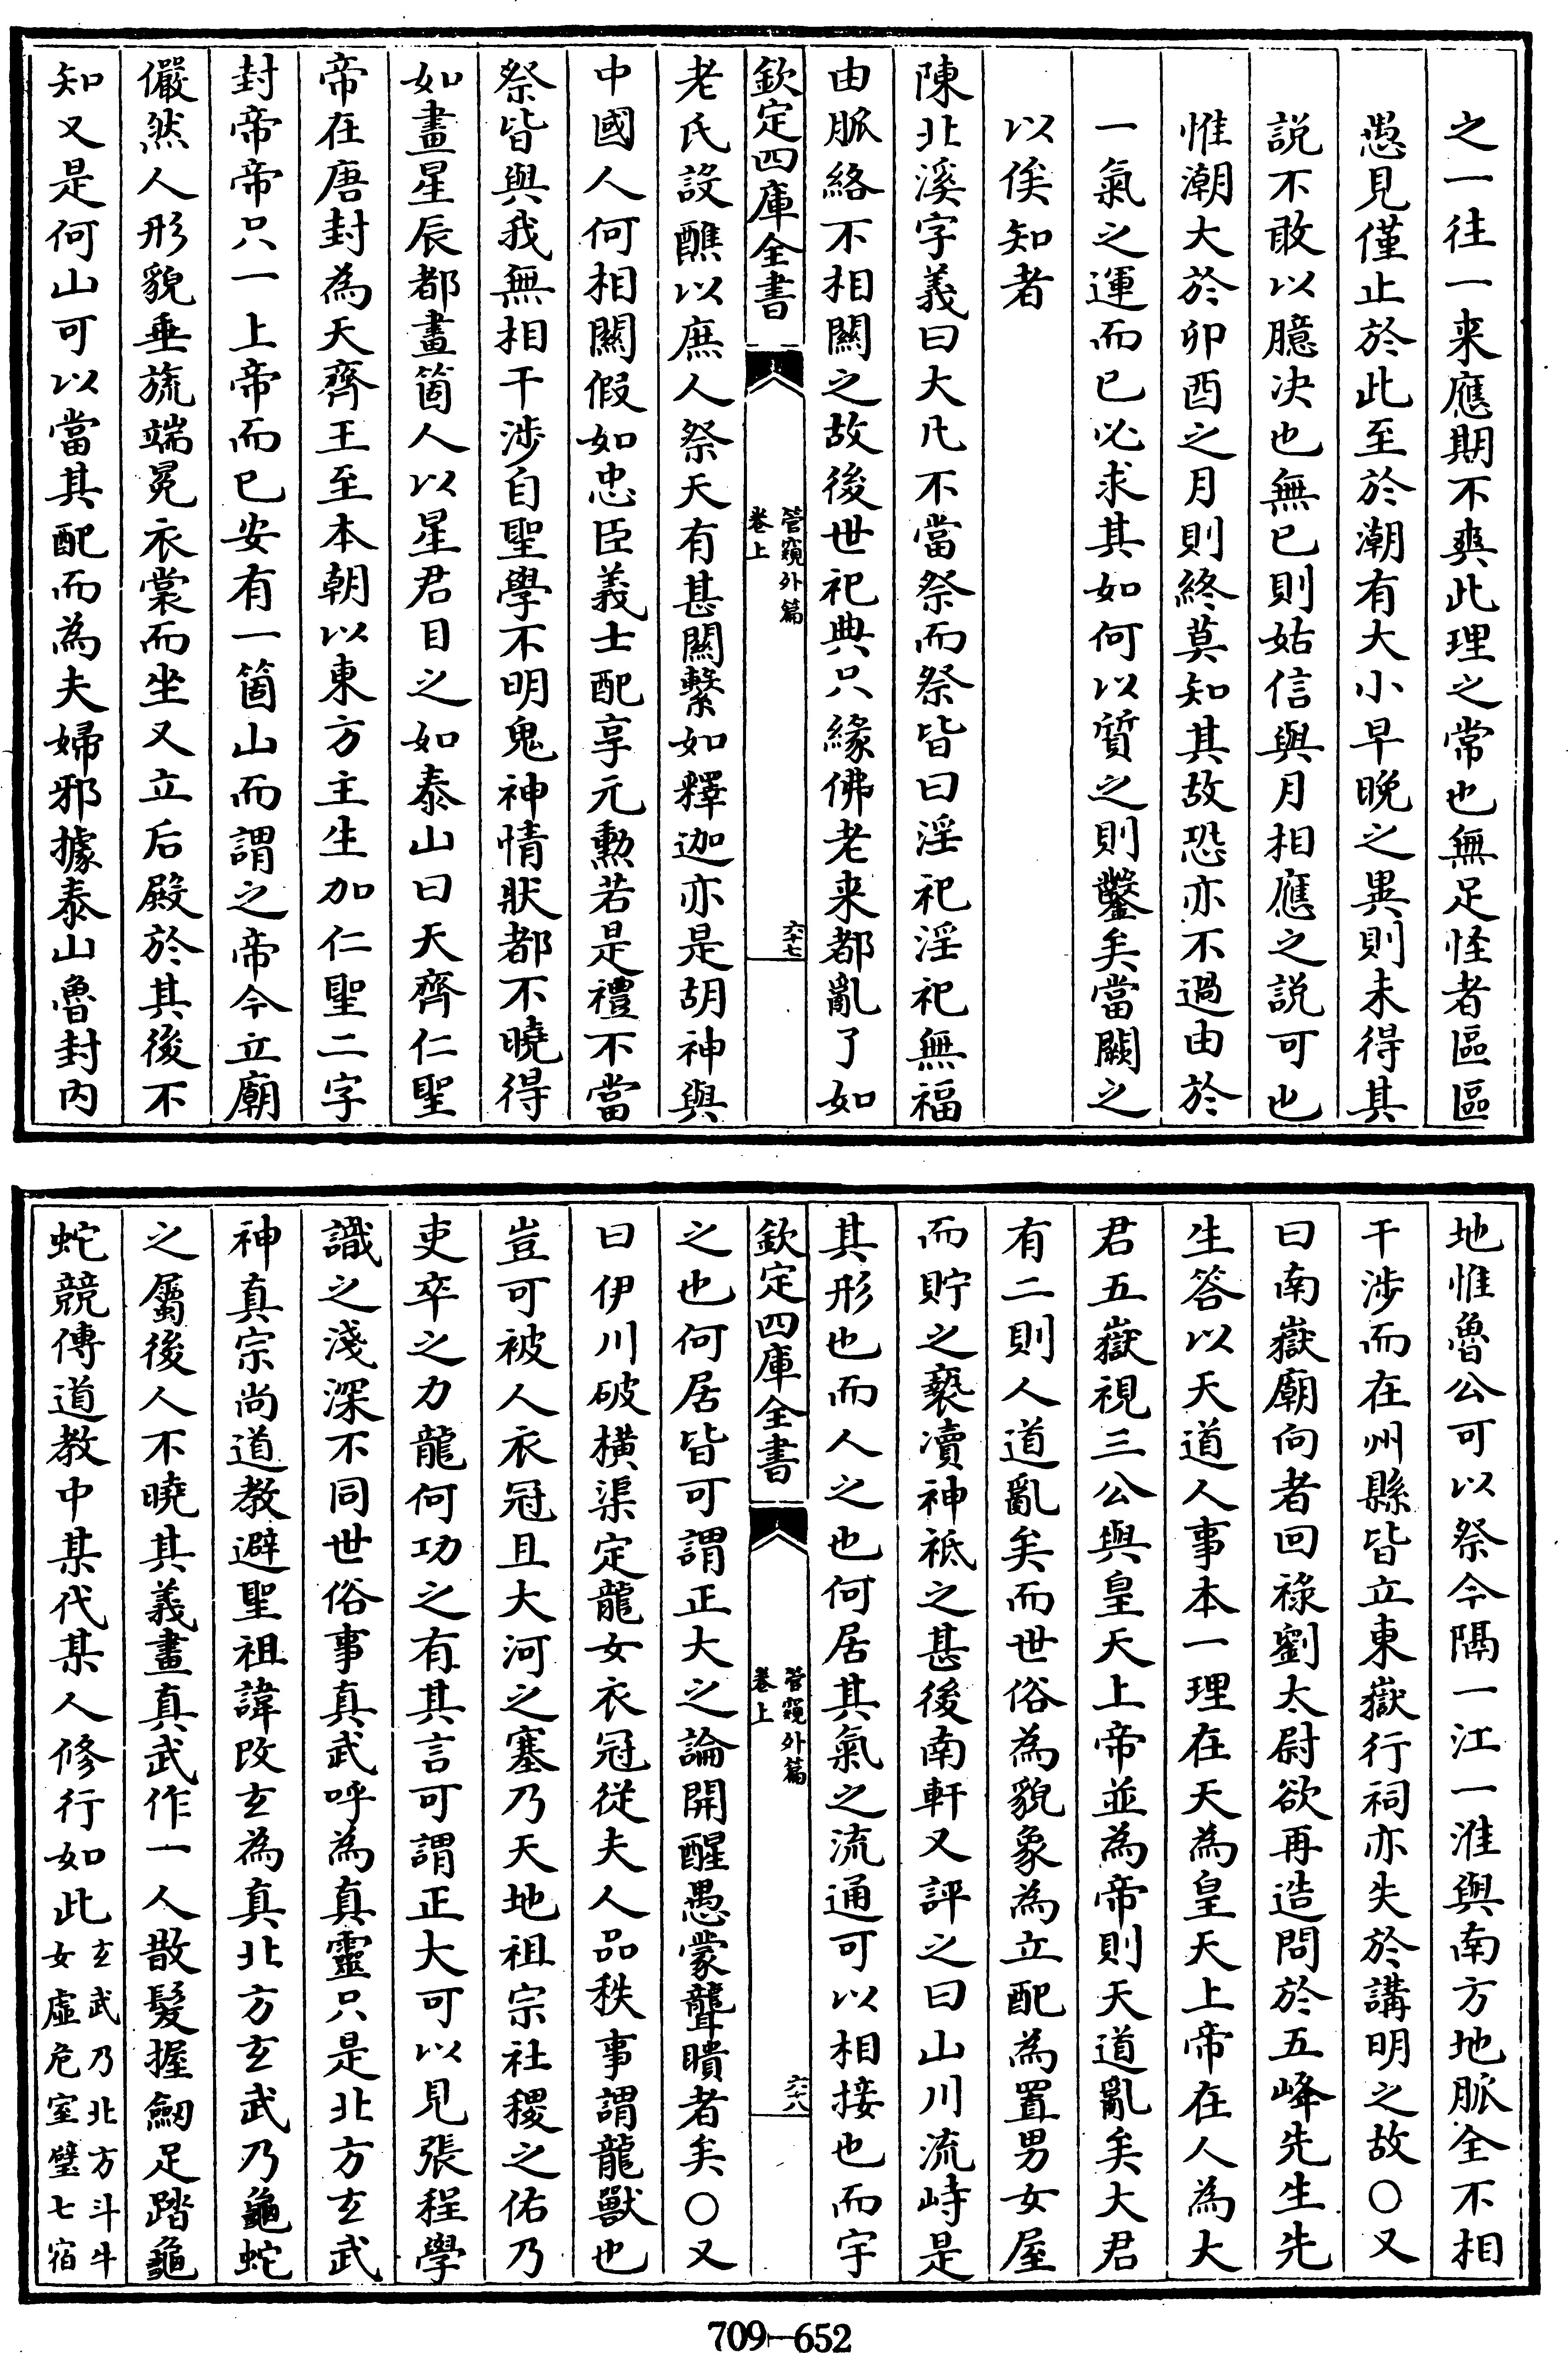 之一往一来應期不爽此理之常也無足怪者區區
愚見僅止於此至於潮有大小早晚之異則未得其
說不敢以臆决也無已則姑信與月相應之説可也
惟潮大於卯酉之月則終莫知其故恐亦不過由於
一氣之運而已必求其如何以質之則鑿矣當闕之
以俟知者
陳北溪字義曰大凡不當祭而祭皆曰淫祀淫祀無福
由脈絡不相關之故後世祀典只緣佛老来都亂了如
欽定四庫全書
管窺外篇
卷上
六十七
老氏設醮以庶人祭天有甚關繫如釋迦亦是胡神與
中國人何相關假如忠臣義士配享元勲若是禮不當
祭皆與我無相干涉自聖學不明鬼神情狀都不曉得
如畫星辰都畫箇人以星君目之如泰山曰天齊仁聖
帝在唐封為天齊王至本朝以東方主生加仁聖二字
封帝帝只一上帝而已安有一箇山而謂之帝今立廟
儼然人形貌垂旒端冕衣裳而坐又立后殿於其後不
知又是何山可以當其配而為夫婦邪據泰山魯封内
地惟魯公可以祭今隔一江一淮與南方地脈全不相
干涉而在州縣皆立東嶽行祠亦失於講明之故○又
曰南嶽廟向者回祿劉太尉欲再造問於五峰先生先
生答以天道人事本一理在天為皇天上帝在人為大
君五嶽視三公與皇天上帝並為帝則天道亂矣大君
有二則人道亂矣而世俗為貌象為立配為置男女屋
而貯之褻瀆神祇之甚後南軒又評之曰山川流峙是
其形也而人之也何居其氣之流通可以相接也而宇
欽定四庫全書
管窺外篇
卷上
六十八
之也何居皆可謂正大之論開醒愚蒙聾瞶者矣○又
曰伊川破横渠定龍女衣冠從夫人品秩事謂龍獸也
豈可被人衣冠且大河之塞乃天地祖宗社稷之佑乃
吏卒之力龍何功之有其言可謂正大可以見張程學
識之淺深不同世俗事真武呼為真靈只是北方玄武
神真宗尚道教避聖祖諱改玄為真北方玄武乃龜蛇
之屬後人不曉其義畫真武作一人散髮握劒足踏龜
蛇競傳道教中某代某人修行如此玄武乃北方斗牛
女虛危室壁七宿
709-652